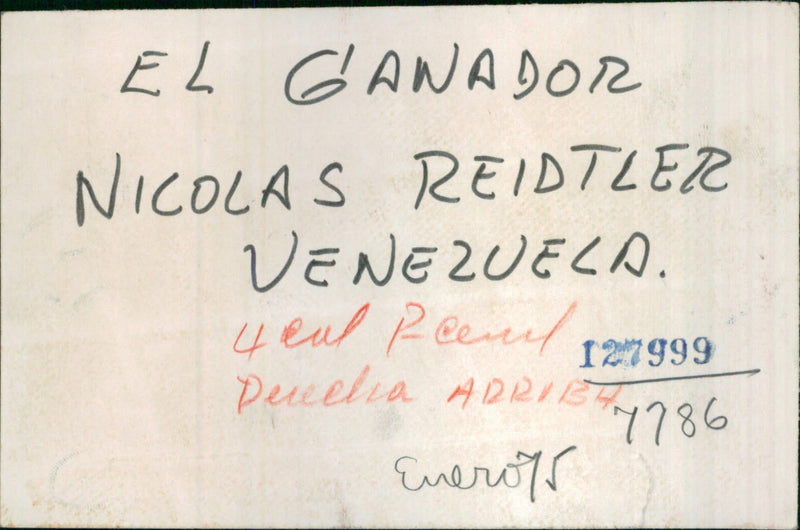 EL GANADOR
NICOLAS REIDTLER
VENEZUELA.
4 col
Derecha ARRIBA
127999
7786
Enero 75